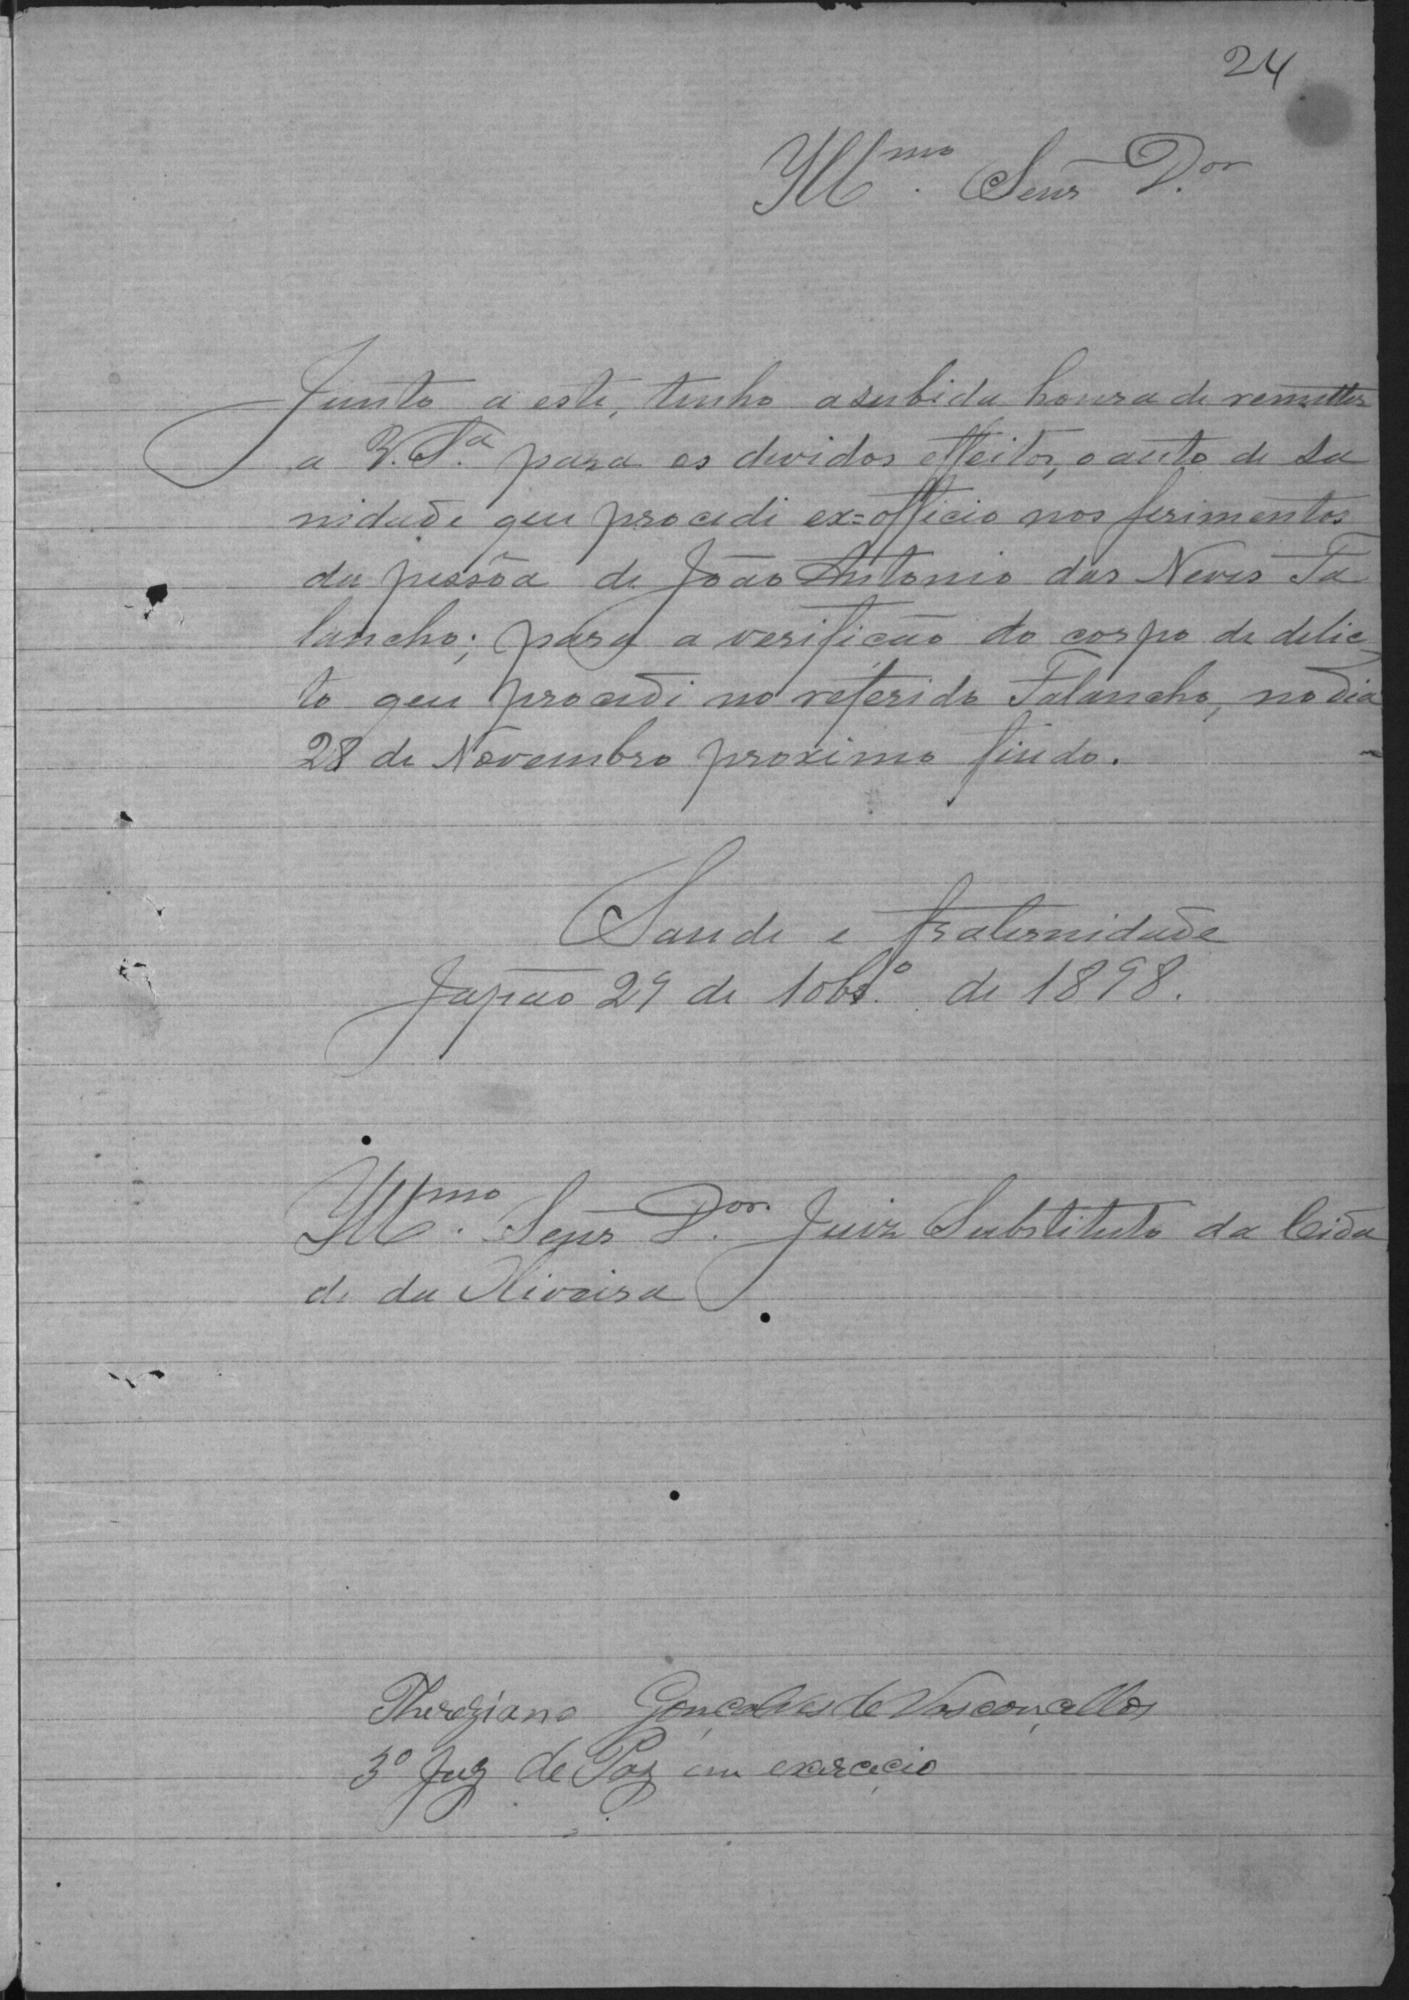 24
Illmo. Senr Dor.
Junto a este, tenho a subida honra de remetter
a V. Sa. para os devidos effeitos, o auto de sa
nidade que procedi ex=officio nos ferimentos
da pessôa de João Antonio das Neves Ta
lancho; para a verificão do corpo de delic
to que procedi no referido Talancho, no dia
28 de Novembro proximo findo.
Saude e fraternidade
Japão 29 de 10bro. de 1898.
Illmo. Senr Dor. Juiz Substituto da Cida
de da Oliveira
Thereziano Gonçalves de Vasconçellos
3º Juz de Paz em exercicio